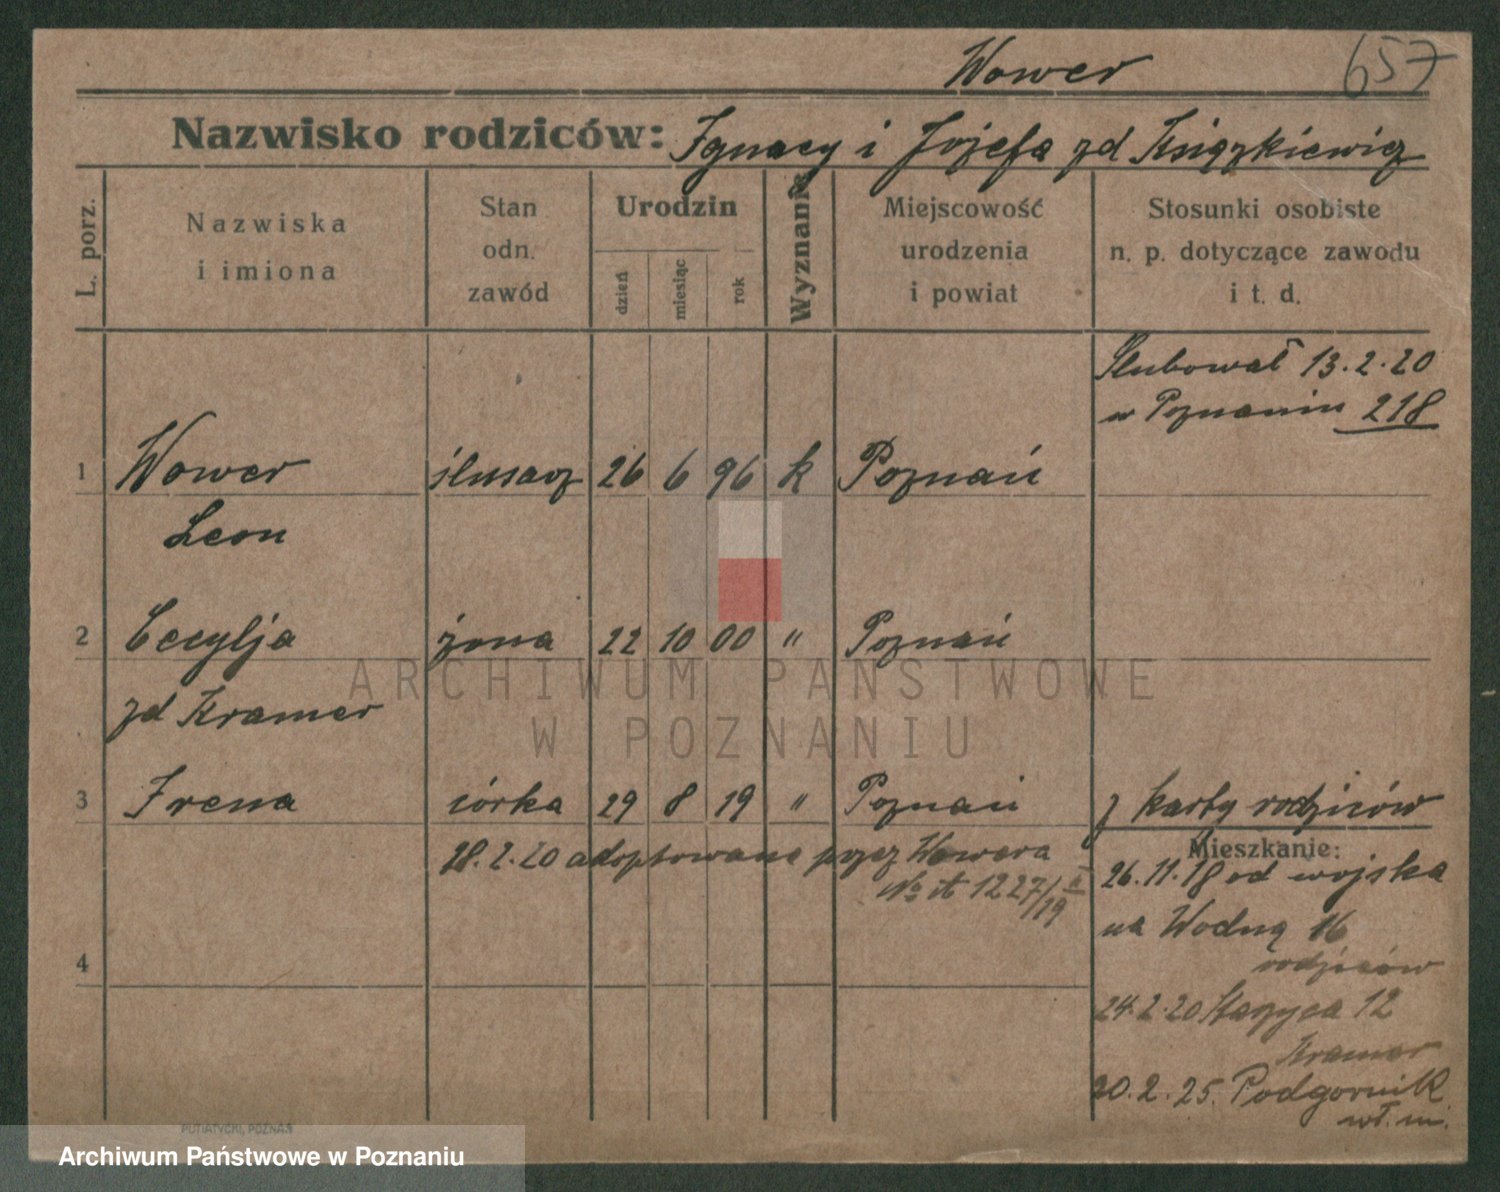 Wower
657
Nazwisko rodziców: Ignacy i Józefa zd Książkiewicz
L. porz.
Nazwiska
i imiona
Stan
odn.
zawód
Urodzin
dzień
miesiąc
rok
Wyznanie
Miejscowość
urodzenia
i powiat
Stosunki osobiste
n. p. dotyczące zawodu
i t. d.
Ślubował 13.2.20
w Poznaniu 218
1 Wower ślusarz 26 6 96 k Poznań
Leon
2 Cecylja żona 22 10 00 " Poznań
zd Kramer
3 Irena córka 29 8 19 " Poznań z karty rodziców
28.2.20 adoptowana przez Wowera
No 1227/19
Mieszkanie:
26.11.18 od wojska
na Wodną 16
rodziców
4
24.2.20 12
Kramer
20.2.25. Podgornik
wł. m.
ARCHIWUM PAŃSTWOWE
W POZNANIU
PUTIATYCKI, POZNAŃ
Archiwum Państwowe w Poznaniu